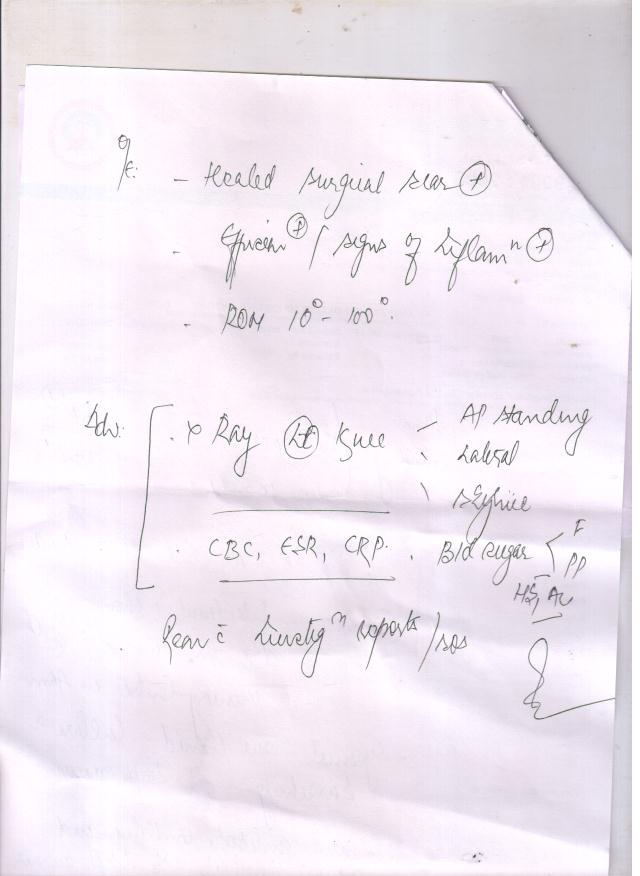 O/E: - Healed surgical scar (+)
- Effusion (+) / signs of Inflamⁿ (+)
- ROM 10° - 100°.
Adv: . X Ray (Lt) Knee - AP standing
Lateral
skyline
. CBC, ESR, CRP. . Bld sugar < F
PP
HbA1c
Rev c̄ Investigⁿ reports / sos